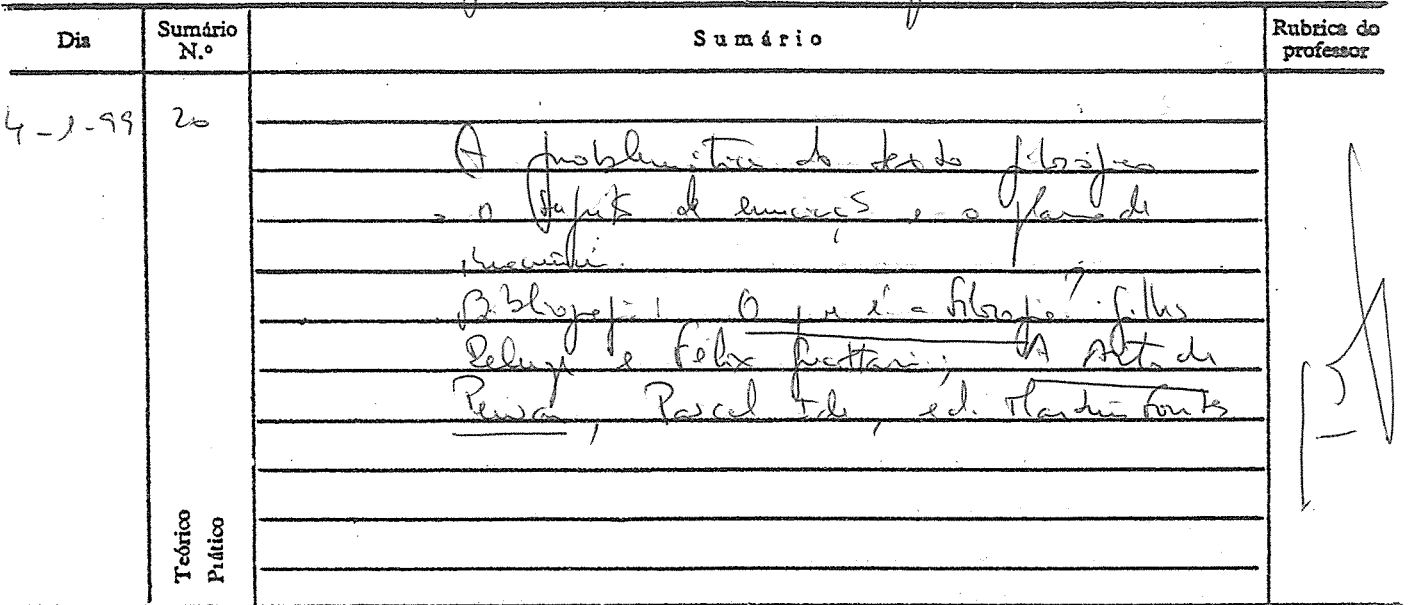 Dia Sumário N.º Sumário Rubrica do professor
4-1-99 20
A problemática do texto filosófico
o sujeito de enunciação e o plano de
imanência.
Bibliografia: O que é a filosofia? Gilles
Deleuze e Félix Guattari; A Arte de
Pensar, Pascal Ide, ed. Martins Fontes
Teórico
Prático